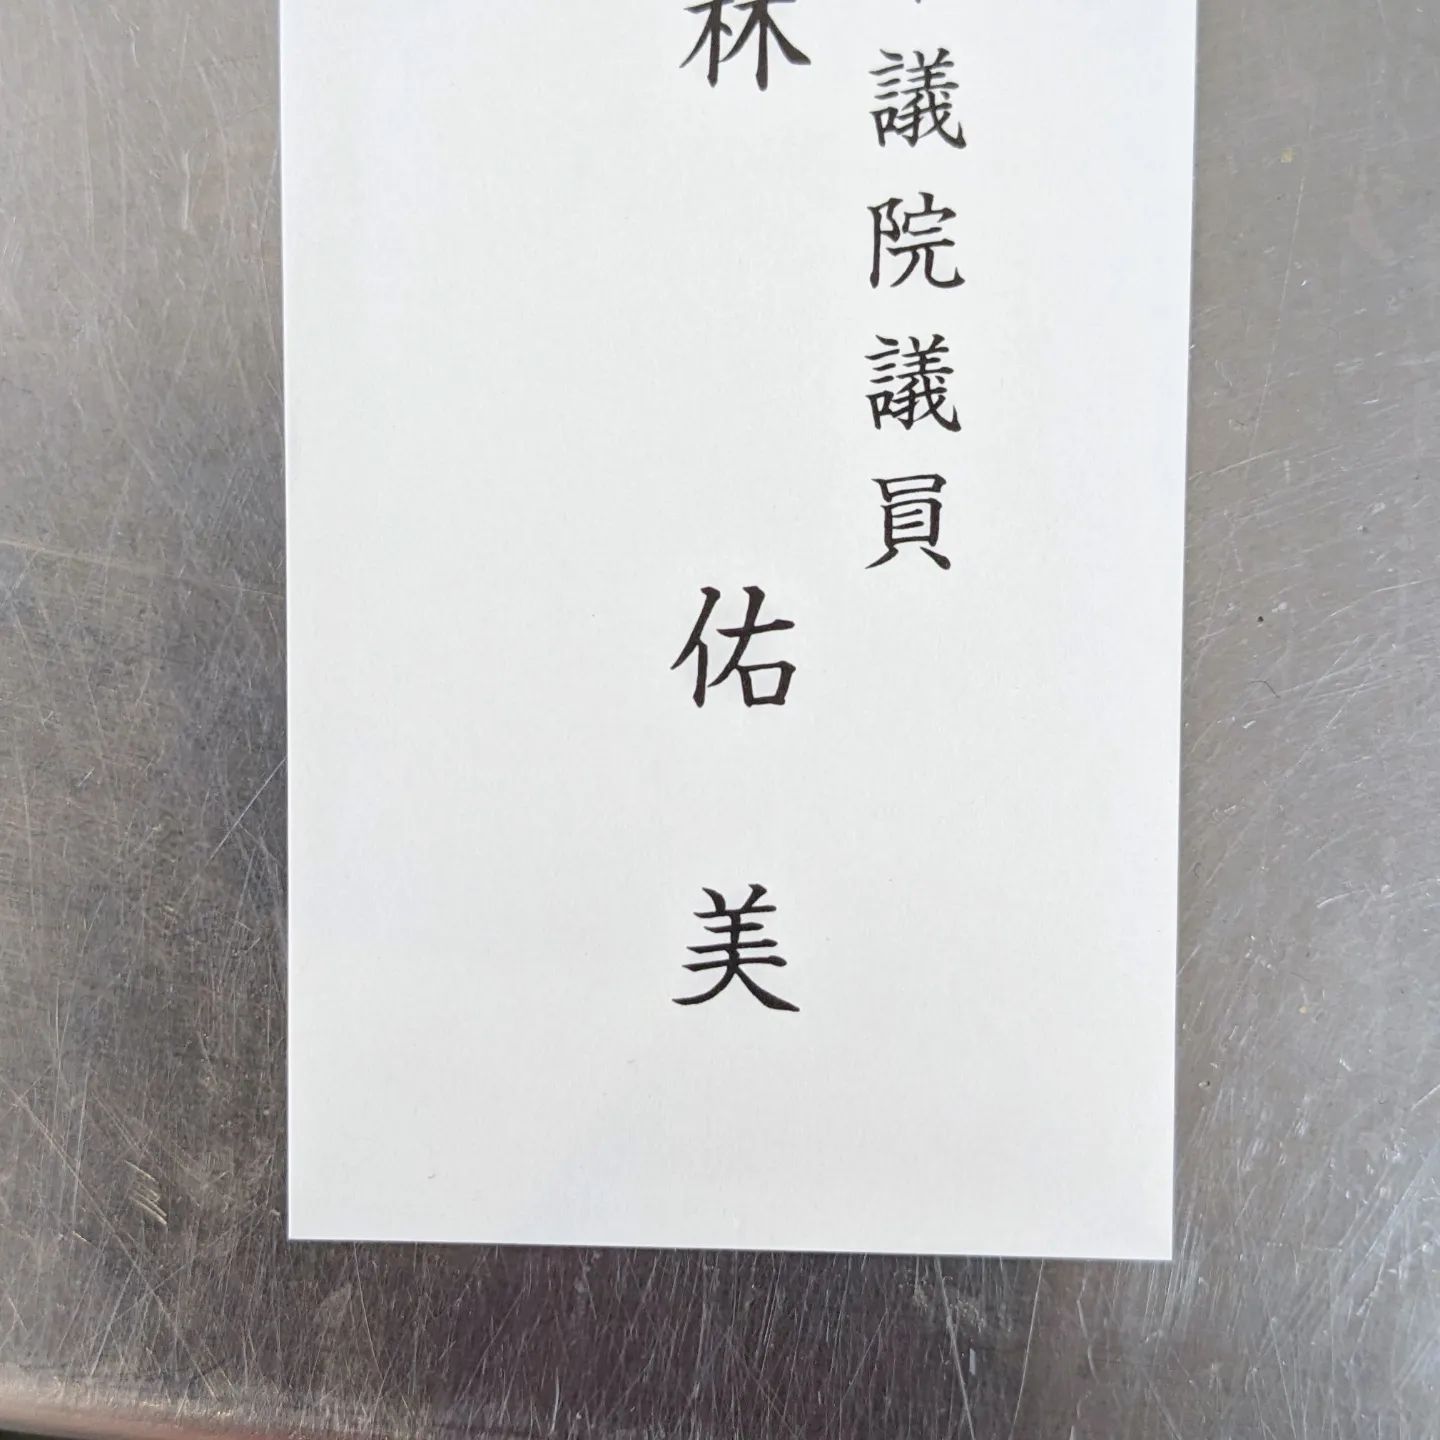 議院議員
林佑美